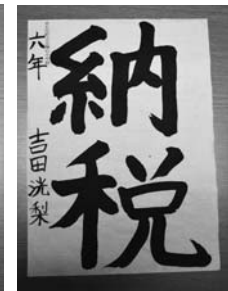 納税
六年 吉田洸梨